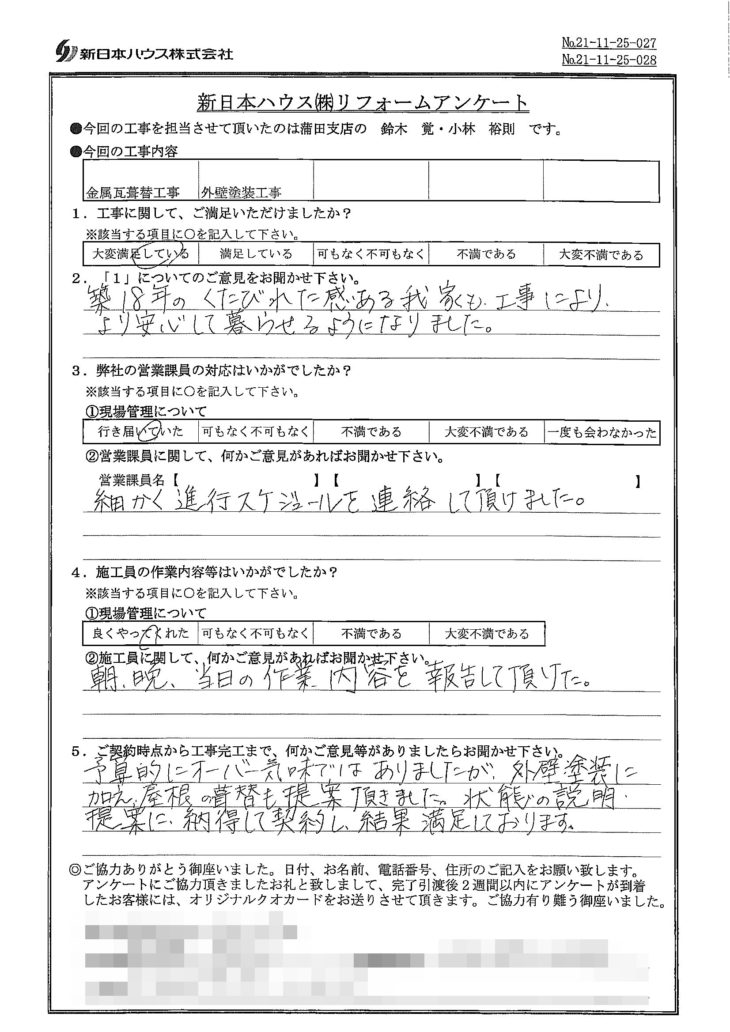 新日本ハウス株式会社
№21-11-25-027
№21-11-25-028
新日本ハウス㈱リフォームアンケート
●今回の工事を担当させて頂いたのは蒲田支店の 鈴木 覚・小林 裕則 です。
●今回の工事内容
金属瓦葺替工事 外壁塗装工事
1．工事に関して、ご満足いただけましたか？
※該当する項目に○を記入して下さい。
大変満足している 満足している 可もなく不可もなく 不満である 大変不満である
2．「1」についてのご意見をお聞かせ下さい。
築18年のくたびれた感ある我家も、工事により、
より安心して暮らせるようになりました。
3．弊社の営業課員の対応はいかがでしたか？
※該当する項目に○を記入して下さい。
①現場管理について
行き届いていた 可もなく不可もなく 不満である 大変不満である 一度も会わなかった
②営業課員に関して、何かご意見があればお聞かせ下さい。
営業課員名【 】【 】【 】
細かく進行スケジュールを連絡して頂けました。
4．施工員の作業内容等はいかがでしたか？
※該当する項目に○を記入して下さい。
①現場管理について
良くやってくれた 可もなく不可もなく 不満である 大変不満である
②施工員に関して、何かご意見があればお聞かせ下さい。
朝、晩、当日の作業内容を報告して頂けた。
5．ご契約時点から工事完工まで、何かご意見等がありましたらお聞かせ下さい。
予算的にオーバー気味ではありましたが、外壁塗装に
加え、屋根の葺替も提案頂きました。状態の説明・
提案に、納得して契約し、結果満足しております。
◎ご協力ありがとう御座いました。日付、お名前、電話番号、住所のご記入をお願い致します。
アンケートにご協力頂きましたお礼と致しまして、完了引渡後2週間以内にアンケートが到着
したお客様には、オリジナルクオカードをお送りさせて頂きます。ご協力有り難う御座いました。